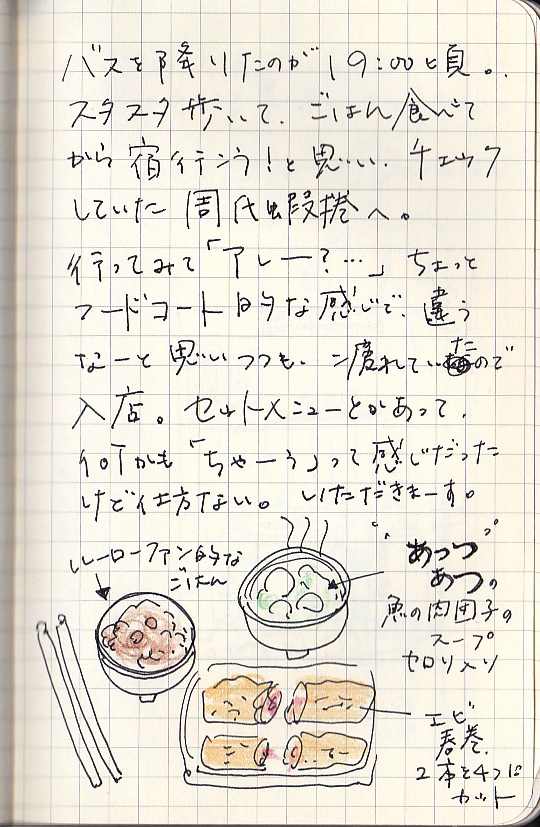 バスを降りたのが19:00頃。
スタスタ歩いて、ごはん食べて
から宿行こう!と思い、チェック
していた周氏蝦捲へ。
行ってみて「アレー?…」ちょっと
フードコート的な感じで、違う
なーと思いつつも、疲れていたので
入店。セットメニューとかあって、
何かも「ちゃーう」って感じだった
けど仕方ない。いただきまーす。
ルーローファン的な
ごはん
"あっつ
あつ"の
魚の肉団子の
スープ
セロリ入り
エビ
春巻、
2本を4つに
カット